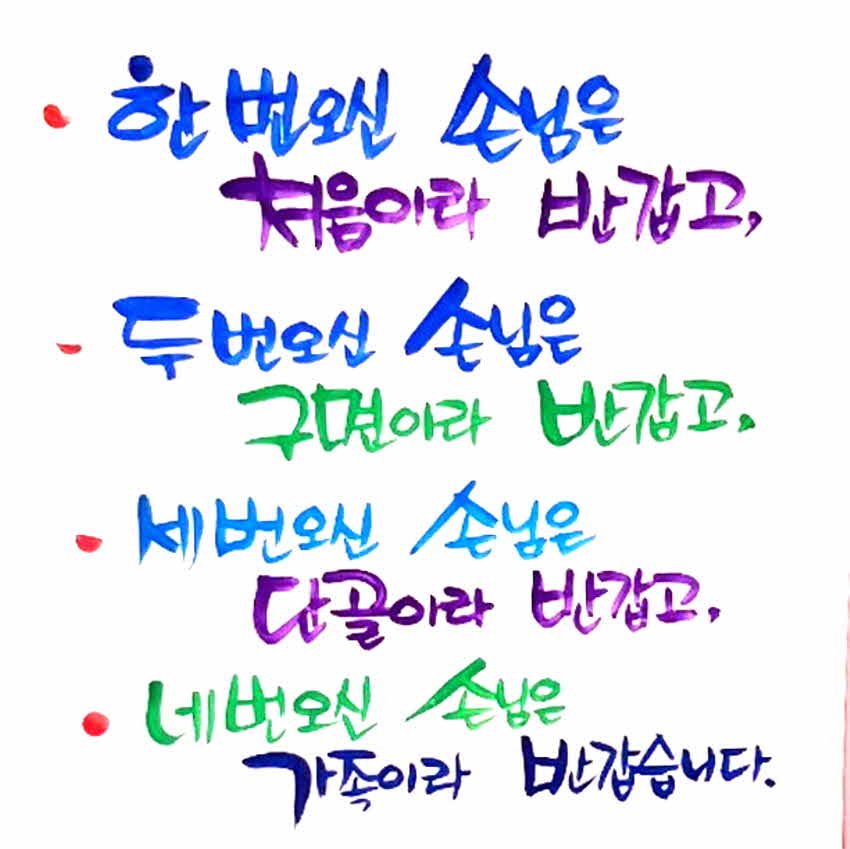 한 번오신 손님은
처음이라 반갑고,
두번오신 손님은
구면이라 반갑고,
세번오신 손님은
단골이라 반갑고,
네번오신 손님은
가족이라 반갑습니다.